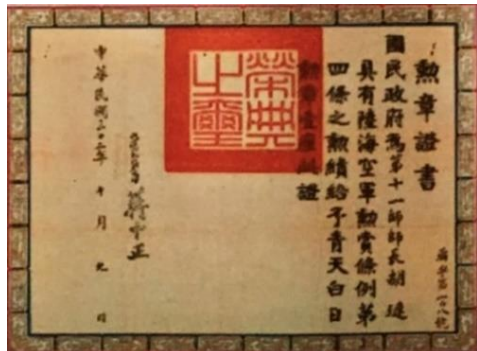 勲章證書
國民政府爲第十一師師長胡璉
具有陸海空軍勲賞條例第
四條之勲績給予青天白日
勲章壹座此證
榮典之璽
蔣中正
中華民國三十二年十月九日